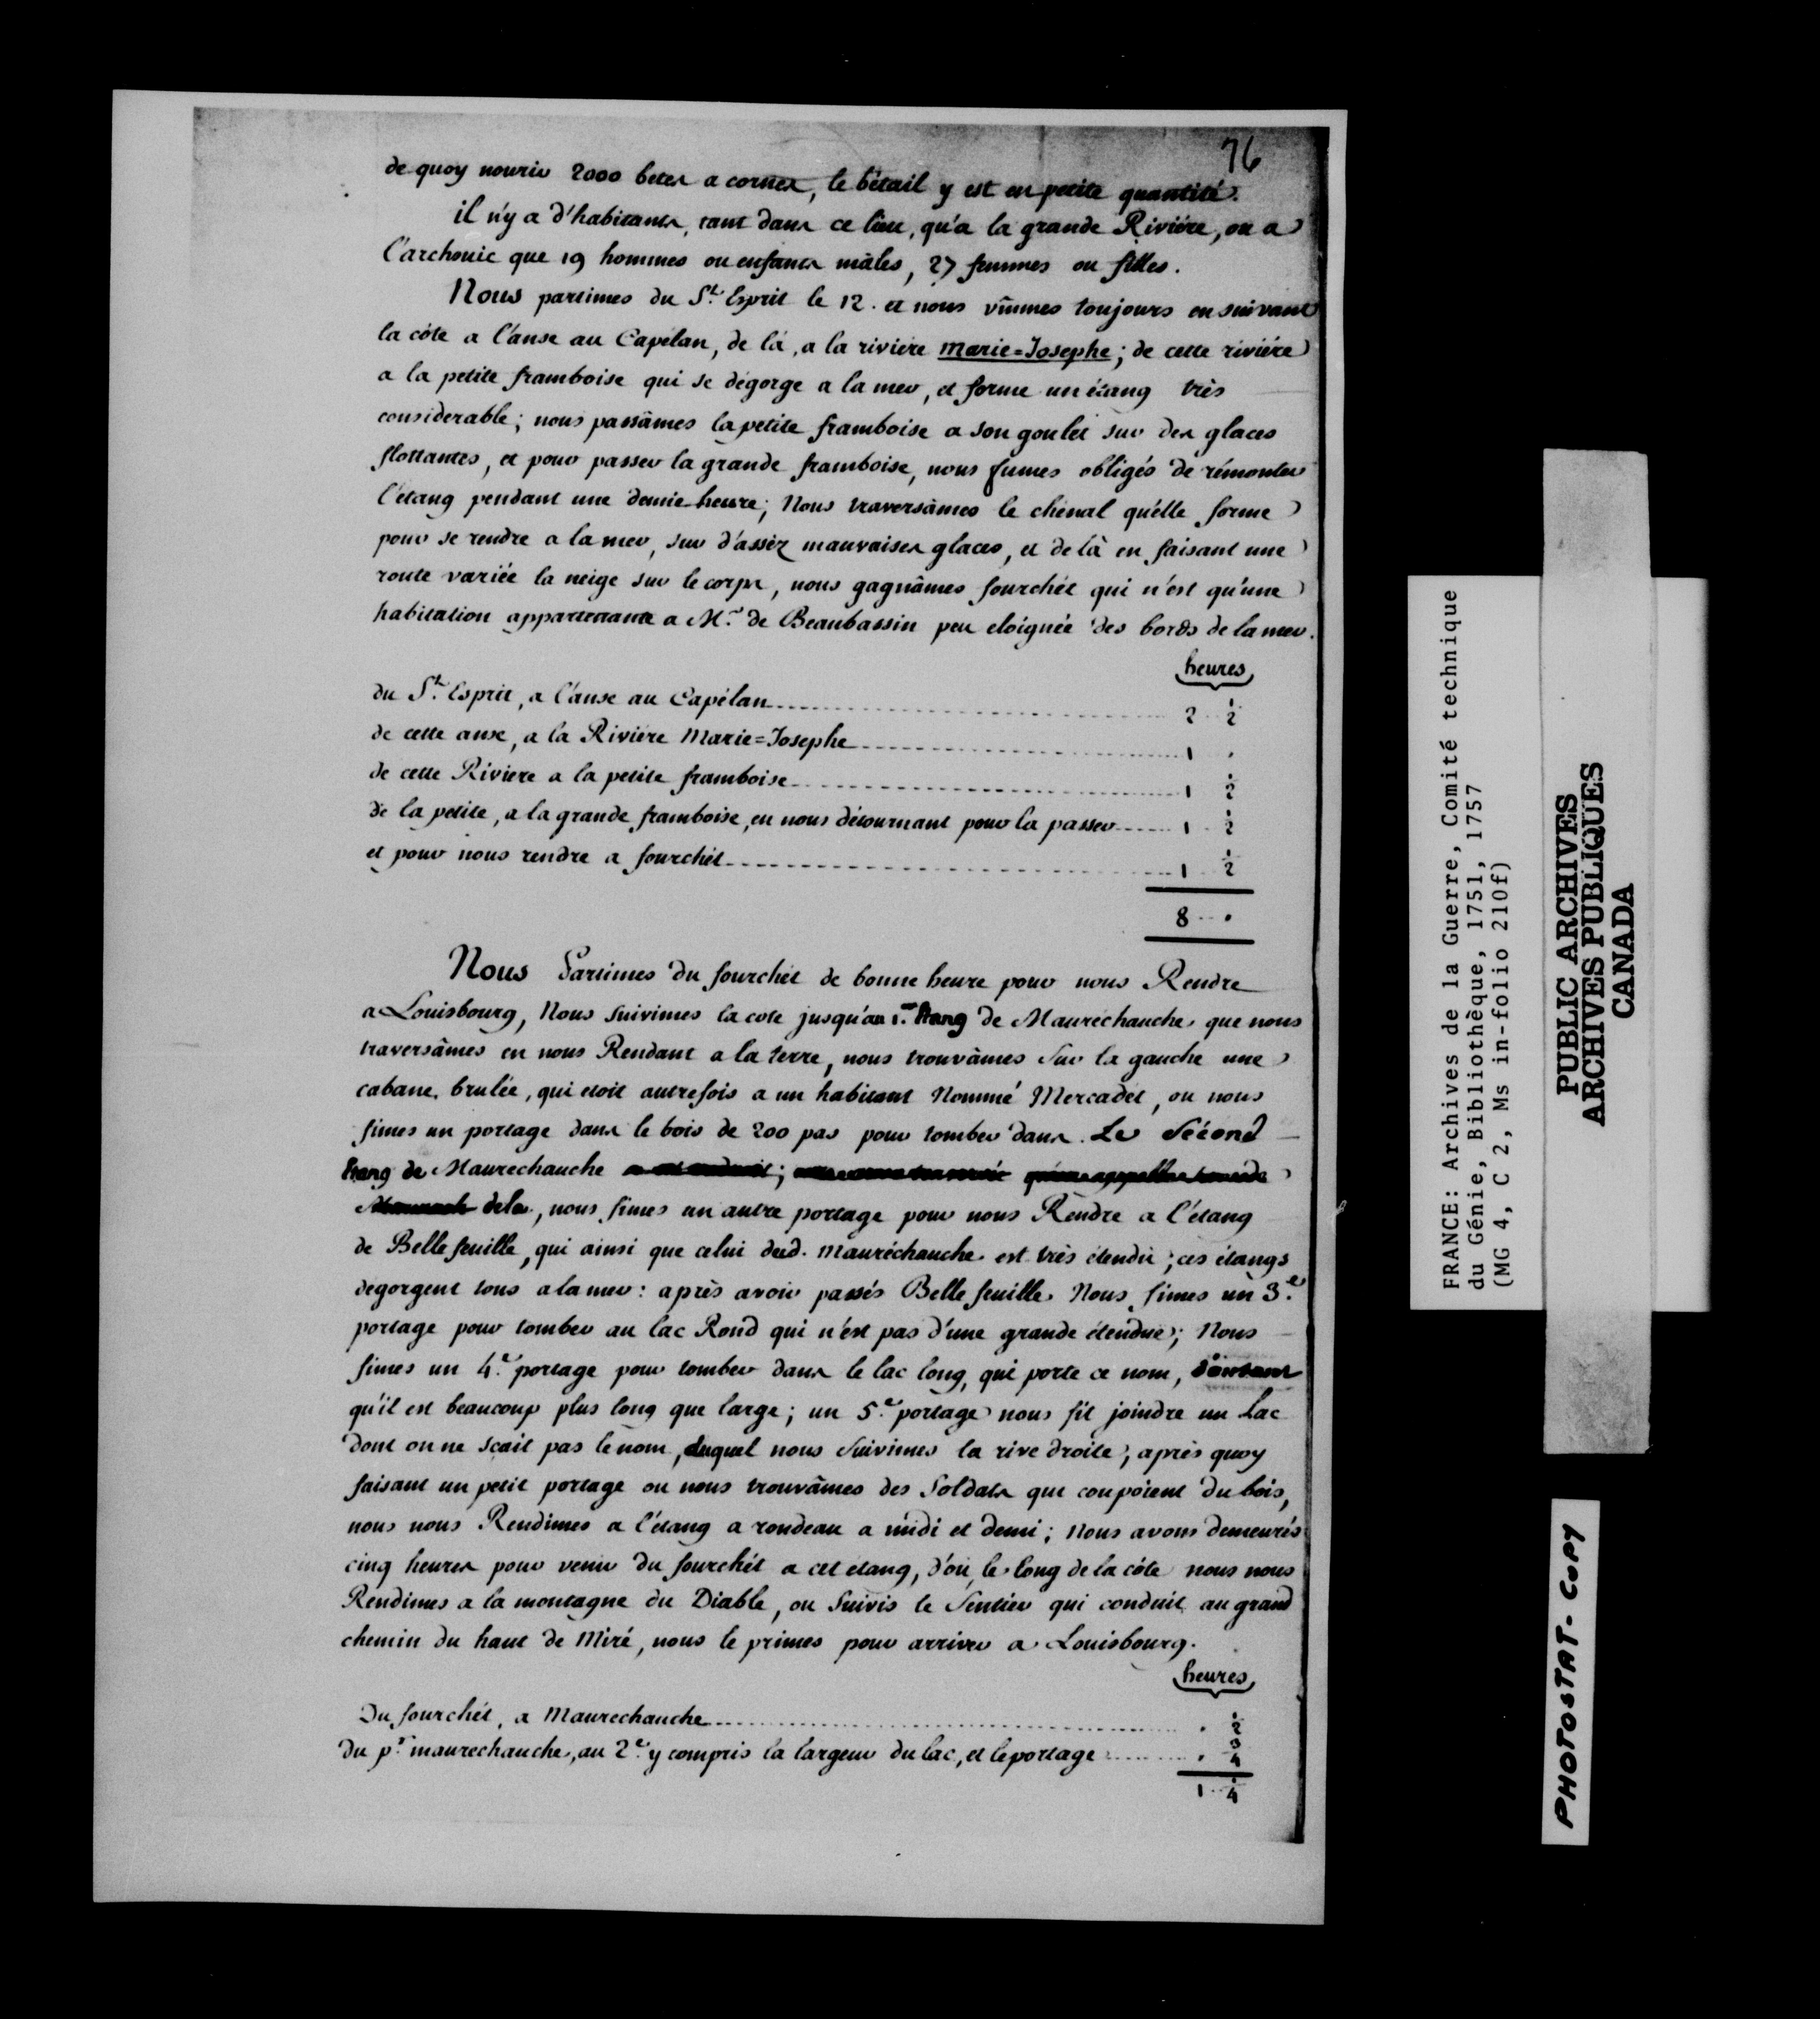 76
de quoy nourir 2000 betes a cornes, le bétail y est en petite quantité.
il n'y a d'habitants, tant dans ce lieu, qu'a la grande Riviére, ou a
l'archouic que 19 hommes ou enfants mâles, 27 femmes ou filles.
Nous partimes du St. Esprit le 12. et nous vînmes toujours en suivant
la côte a l'anse au Capélan, de là, a la riviére marie=Josephe; de cette riviére
a la petite framboise qui se dégorge a la mer, et forme un étang très
considerable; nous passâmes la petite framboise a son goulet sur des glaces
flottantes, et pour passer la grande framboise, nous fumes obligés de rémonter
l'étang pendant une demie heure; Nous traversâmes le chénal qu'elle forme
pour se rendre a la mer, sur d'assèz mauvaises glaces, et de là en faisant une
route variée la neige sur le corps, nous gagnâmes fourchét qui n'est qu'une
habitation appartenante a Mr. de Beaubassin peu eloignée des bords de la mer.
heures
du St. Esprit, a l'anse au Capélan 2 1/2
de cette anse, a la Riviére Marie=Josephe 1 .
de cette Riviere a la petite framboise 1 1/2
de la petite, a la grande framboise, en nous détournant pour la passer 1 1/2
et pour nous rendre a fourchét 1 1/2
8 .
Nous Partimes du fourchét de bonne heure pour nous Rendre
a Louisbourg, Nous suivimes la cote jusqu'au 1er. Etang de Mauréchauche que nous
traversâmes en nous Rendant a la terre, nous trouvâmes sur la gauche une
cabane brulée, qui etoit autrefois a un habitant Nommé Mercadét, ou nous
fimes un portage dans le bois de 200 pas pour tomber dans Le Sécond
Etang de Maurechauche
dela, nous fimes un autre portage pour nous Rendre a l'étang
de Belle feuille, qui ainsi que celui dud. mauréchauche est très étendû; ces étangs
degorgent tous a la mer: après avoir passés Belle feuille Nous fimes un 3.e
portage pour tomber au lac Rond qui n'est pas d'une grande étendue; Nous
fimes un 4.e portage pour tomber dans le lac long, qui porte ce nom, d'autant
qu'il est beaucoup plus long que large; un 5.e portage nous fit joindre un Lac
dont on ne sçait pas le nom, duquel nous Suivimes la rive droite; après quoy
faisant un petit portage ou nous trouvâmes des Soldats qui coupoient du bois,
nous nous Rendimes a l'étang a rondeau a midi et demi; nous avons demeurés
cinq heures pour venir du fourchét a cet etang, d'où, le long de la côte nous nous
Rendimes a la montagne du Diable, ou Suivis le Sentier qui conduit au grand
chemin du haut de Miré, nous le primes pour arriver a Louisbourg.
heures
Du fourchét, a Maurechauche . 1/2
du pr. maurechauche, au 2.e y compris la largeur du lac, et le portage . 3/4
1 1/4
FRANCE: Archives de la Guerre, Comité technique
du Génie, Bibliothèque, 1751, 1757
(MG 4, C 2, Ms in-folio 210f)
PUBLIC ARCHIVES
ARCHIVES PUBLIQUES
CANADA
PHOTOSTAT-COPY